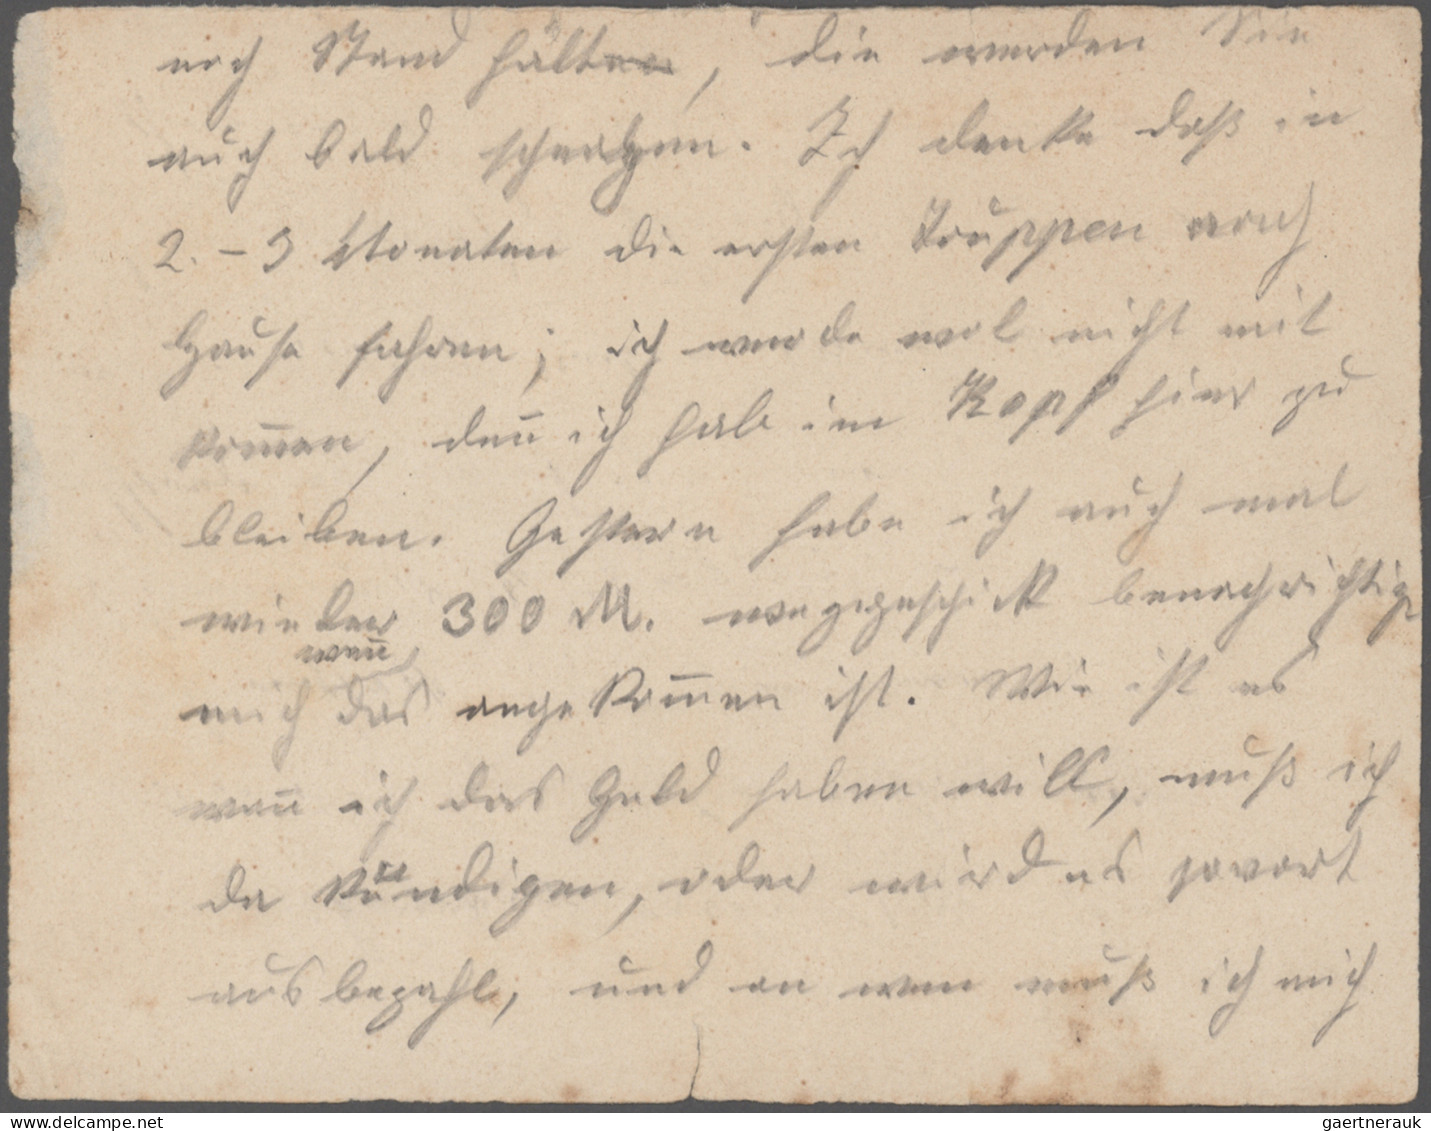 noch Stand hälten, die werden Sie
auch bald schnappen. Ich denke daß in
2.-3 Monaten die ersten Truppen nach
Hause fahren; ich werde wol nicht mit
kom̅en, den̅ ich hab im Kopf hier zu
bleiben. Gestern habe ich auch mal
wieder 300 M. weggeschickt benachrichtige
wen̅
mich das angekom̅en ist. Wie ist es
wen̅ ich das Geld haben will, muß ich
da kündigen, oder wird es sovort
ausbezahl, und an wen muß ich mich
www.delcampe.net
gaertnerauk